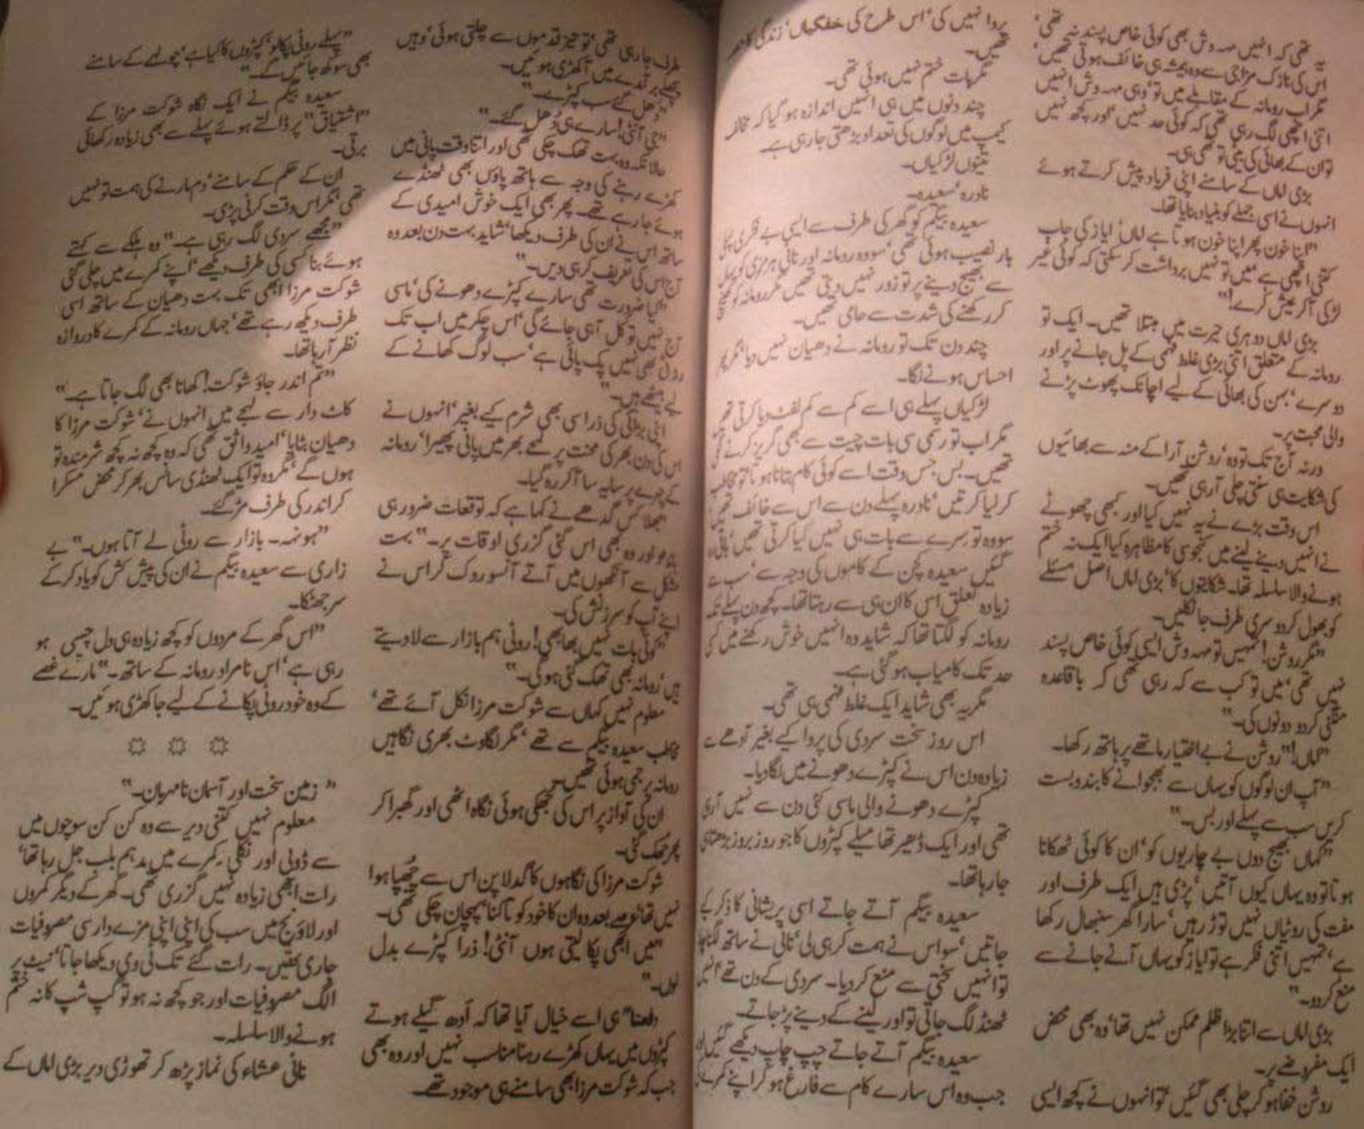 یہ تھی کہ انہیں مہ وش بھی کوئی خاص پسند نہ تھی‘
اس کی نازک مزاجی سے وہ ہمیشہ ہی خائف ہوتی تھیں‘
مگر اب رومانہ کے مقابلے میں تو‘ وہی مہ وش انہیں
اتنی اچھی لگ رہی تھی کہ کوئی حد نہیں‘ اور کچھ نہیں
تو ان کے بھائی کی بیٹی تو تھی ہی۔
بڑی اماں کے سامنے اپنی فریاد پیش کرتے ہوئے
انہوں نے اسی جملے کو بنیاد بنایا تھا۔
”اپنا خون پھر اپنا خون ہوتا ہے اماں! ایاز کی جاب
کتنی اچھی ہے‘ میں تو نہیں برداشت کر سکتی کہ کوئی غیر
لڑکی آکر عیش کرے!“
بڑی اماں دوہری حیرت میں مبتلا تھیں۔ ایک تو
رومانہ کے متعلق اتنی بڑی غلط فہمی کے پل جانے پر اور
دوسرے‘ بہن کی بھائی کے لیے اچانک پھوٹ پڑنے
والی محبت پر۔
ورنہ آج تک تو وہ‘ روشن آرا کے منہ سے بھائیوں
کی شکایت ہی سنتی چلی آ رہی تھیں۔
اس وقت بڑے نے یہ نہیں کیا اور کبھی چھوٹے
نے انہیں دینے لینے میں کنجوسی کا مظاہرہ کیا‘ ایک نہ ختم
ہونے والا سلسلہ تھا۔ شکایتوں کا‘ بڑی اماں اصل مسئلے
کو بھول کر دوسری طرف جا نکلیں۔
”مگر روشن! تمہیں تو مہ وش ایسی کوئی خاص پسند
نہیں تھی‘ میں تو کب سے کہہ رہی تھی کہ باقاعدہ
منگنی کر دو دونوں کی۔“
”اماں!“ روشن نے بے اختیار ماتھے پر ہاتھ رکھا۔
”آپ ان لوگوں کو یہاں سے بھجوانے کا بندوبست
کریں سب سے پہلے اور بس۔“
”کہاں بھیج دوں بے چاریوں کو‘ ان کا کوئی ٹھکانا
ہوتا تو وہ یہاں کیوں آتیں‘ پڑی ہیں ایک طرف اور
مفت کی روٹیاں نہیں توڑ رہیں‘ سارا گھر سنبھال رکھا
ہے‘ تمہیں اتنی فکر ہے تو ایاز کو یہاں آنے جانے سے
منع کر دو۔“
بڑی اماں سے اتنا بڑا ظلم ممکن نہیں تھا‘ وہ بھی محض
ایک مفروضے پر۔
روشن خفا ہو کر چلی بھی گئیں‘ تو انہوں نے کچھ ایسی
پروا نہیں کی‘ اس طرح کی خفگیاں‘ زندگی کا حصہ
تھیں۔
مگر بات ختم نہیں ہوئی تھی۔
چند دنوں میں ہی انہیں اندازہ ہو گیا کہ مخالف
کیمپ میں لوگوں کی تعداد بڑھتی جا رہی ہے۔
تینوں لڑکیاں۔
نادرہ‘ سعیدہ۔
سعیدہ بیگم کو گھر کی طرف سے ایسی بے فکری پہلی
بار نصیب ہوئی تھی‘ سو وہ رومانہ اور نانیا ہرمزی کو یہاں
سے بھیج دینے پر تو زور نہیں دیتی تھیں مگر رومانہ کو کھینچ
کر رکھنے کی شدت سے حامی تھیں۔
چند دن تک تو رومانہ نے دھیان نہیں دیا‘ مگر پھر
احساس ہونے لگا۔
لڑکیاں پہلے ہی اسے کم سے کم لفٹ دیا کرتی تھیں
مگر اب تو رسمی سی بات چیت سے بھی گریز کرنے لگی
تھیں۔ بس جس وقت اسے کوئی کام بتانا ہوتا تو مخاطب
کر لیا کرتیں‘ نادرہ پہلے دن سے اس سے خائف تھیں‘
سو وہ تو سرے سے بات ہی نہیں کیا کرتی تھیں‘ باقی رہ
گئیں سعیدہ کچن کے کاموں کی وجہ سے‘ سب سے
زیادہ تعلق اس کا ان ہی سے رہتا تھا۔ کچھ دن پہلے تک
رومانہ کو لگتا تھا کہ شاید وہ انہیں خوش رکھنے میں کسی
حد تک کامیاب ہو گئی ہے۔
مگر یہ بھی شاید ایک غلط فہمی ہی تھی۔
اس روز سخت سردی کی پروا کیے بغیر آدھے سے
زیادہ دن اس نے کپڑے دھونے میں لگا دیا۔
کپڑے دھونے والی ماسی کئی دن سے نہیں آ رہی
تھی اور ایک ڈھیر تھا میلے کپڑوں کا جو روز بروز بڑھتا ہی
جا رہا تھا۔
سعیدہ بیگم آتے جاتے اسی پریشانی کا ذکر کیے
جاتیں‘ سو اس نے ہمت کر ہی لی‘ نانی نے ساتھ لگنا چاہا
تو انہیں سختی سے منع کر دیا۔ سردی کے دن تھے‘ انہیں
ٹھنڈ لگ جاتی تو اور لینے کے دینے پڑ جاتے۔
سعیدہ بیگم آتے جاتے چپ چاپ دیکھے گئیں اور
جب وہ اس سارے کام سے فارغ ہو کر اپنے کمرے کی
طرف جا رہی تھی‘ تو تیز قدموں سے چلتی ہوئی‘ وہیں
پچھلے برآمدے میں آ کھڑی ہوئیں۔
”دھل گئے سب کپڑے۔“
”جی آنٹی! سارے ہی دھل گئے۔“
حالانکہ وہ بہت تھک چکی تھی اور اتنا وقت پانی میں
کھڑے رہنے کی وجہ سے ہاتھ پاؤں بھی ٹھنڈے
ہوئے جا رہے تھے۔ پھر بھی ایک خوش امیدی کے
ساتھ اس نے ان کی طرف دیکھا‘ شاید بہت دن بعد وہ
آج اس کی تعریف کر ہی دیں۔
”کیا ضرورت تھی سارے کپڑے دھونے کی‘ ماسی
آج نہیں تو کل آ ہی جائے گی‘ اس چکر میں اب تک
روٹی بھی نہیں پک پائی ہے‘ سب لوگ کھانے کے
لیے بیٹھے ہیں۔“
اپنی بڑائی کی ذرا سی بھی شرم کیے بغیر‘ انہوں نے
اس کی دن بھر کی محنت پر لمحے بھر میں پانی پھیرا‘ رومانہ
کے چہرے پر سایہ سا آ کر رہ گیا۔
بھلا کس گدھے نے کہا ہے کہ توقعات ضرور ہی
باندھو اور وہ بھی اس گئی گزری اوقات پر۔“ بہت
مشکل سے آنکھوں میں آتے آنسو روک کر اس نے
اپنے آپ کو سرزنش کی۔
”کوئی بات نہیں بھابھی! روٹی ہم بازار سے لا دیتے
ہیں‘ رومانہ بھی تھک گئی ہو گی۔“
معلوم نہیں کہاں سے شوکت مرزا نکل آئے تھے‘
مخاطب سعیدہ بیگم سے تھے‘ مگر لگاوٹ بھری نگاہیں
رومانہ پر جمی ہوئی تھیں۔
ان کی آواز پر اس کی جھکی ہوئی نگاہ اٹھی اور گھبرا کر
پھر جھک گئی۔
شوکت مرزا کی نگاہوں کا گدلا پن اس سے چھپا ہوا
نہیں تھا‘ بعد وہ ان کا خود کو تاکنا‘ پہچان چکی تھی۔
”میں ابھی پکا لیتی ہوں آنٹی! ذرا کپڑے بدل
لوں۔“
دفعتا“ ہی اسے خیال آیا تھا کہ آدھ گیلے ہوتے
کپڑوں میں یہاں کھڑے رہنا مناسب نہیں اور وہ بھی
جب کہ شوکت مرزا بھی سامنے ہی موجود تھے۔
”پہلے روٹی پکا لو‘ کپڑوں کا کیا ہے‘ چولہے کے سامنے
بھی سوکھ جائیں گے۔“
سعیدہ بیگم نے ایک نگاہ شوکت مرزا کے
”اشتیاق“ پر ڈالتے ہوئے پہلے سے بھی زیادہ رکھائی
برتی۔
ان کے حکم کے سامنے‘ دم مارنے کی ہمت تو نہیں
تھی‘ مگر اس وقت کرنی پڑی۔
”مجھے سردی لگ رہی ہے۔“ وہ ہلکے سے کہتے
ہوئے بنا کسی کی طرف دیکھے‘ اپنے کمرے میں چلی گئی
شوکت مرزا ابھی تک بہت دھیان کے ساتھ اسی
طرف دیکھ رہے تھے‘ جہاں رومانہ کے کمرے کا دروازہ
نظر آ رہا تھا۔
”تم اندر جاؤ شوکت! کھانا بھی لگ جاتا ہے۔“
کاٹ دار سے لہجے میں انہوں نے‘ شوکت مرزا کا
دھیان بٹایا‘ امید واثق تھی کہ وہ کچھ نہ کچھ شرمندہ تو
ہوں گے‘ مگر وہ تو ایک ٹھنڈی سانس بھر کر محض مسکرا
کر اندر کی طرف مڑ گئے۔
”ہونہہ۔ بازار سے روٹی لے آتا ہوں۔“ بے
زاری سے سعیدہ بیگم نے ان کی پیش کش کو یاد کر کے
سر جھٹکا۔
”اس گھر کے مردوں کو کچھ زیادہ ہی دل چسپی ہو
رہی ہے‘ اس نامراد رومانہ کے ساتھ۔“ مارے غصے
کے وہ خود روٹی پکانے کے لیے جا کھڑی ہوئیں۔
”زمین سخت اور آسمان نامہربان۔“
معلوم نہیں کتنی دیر سے وہ کن کن سوچوں میں
سے ڈوبی اور نکلی۔ کمرے میں مدھم بلب جل رہا تھا‘
رات ابھی زیادہ نہیں گزری تھی۔ گھر کے دیگر کمروں
اور لاؤنج میں سب کی اپنی اپنی مزے دار سی مصروفیات
جاری تھیں۔ رات گئے تک ٹی وی دیکھا جاتا‘ نیٹ پر
الگ مصروفیات اور جو کچھ نہ ہو تو گپ شپ کا نہ ختم
ہونے والا سلسلہ۔
نانی عشاء کی نماز پڑھ کر تھوڑی دیر بڑی اماں کے